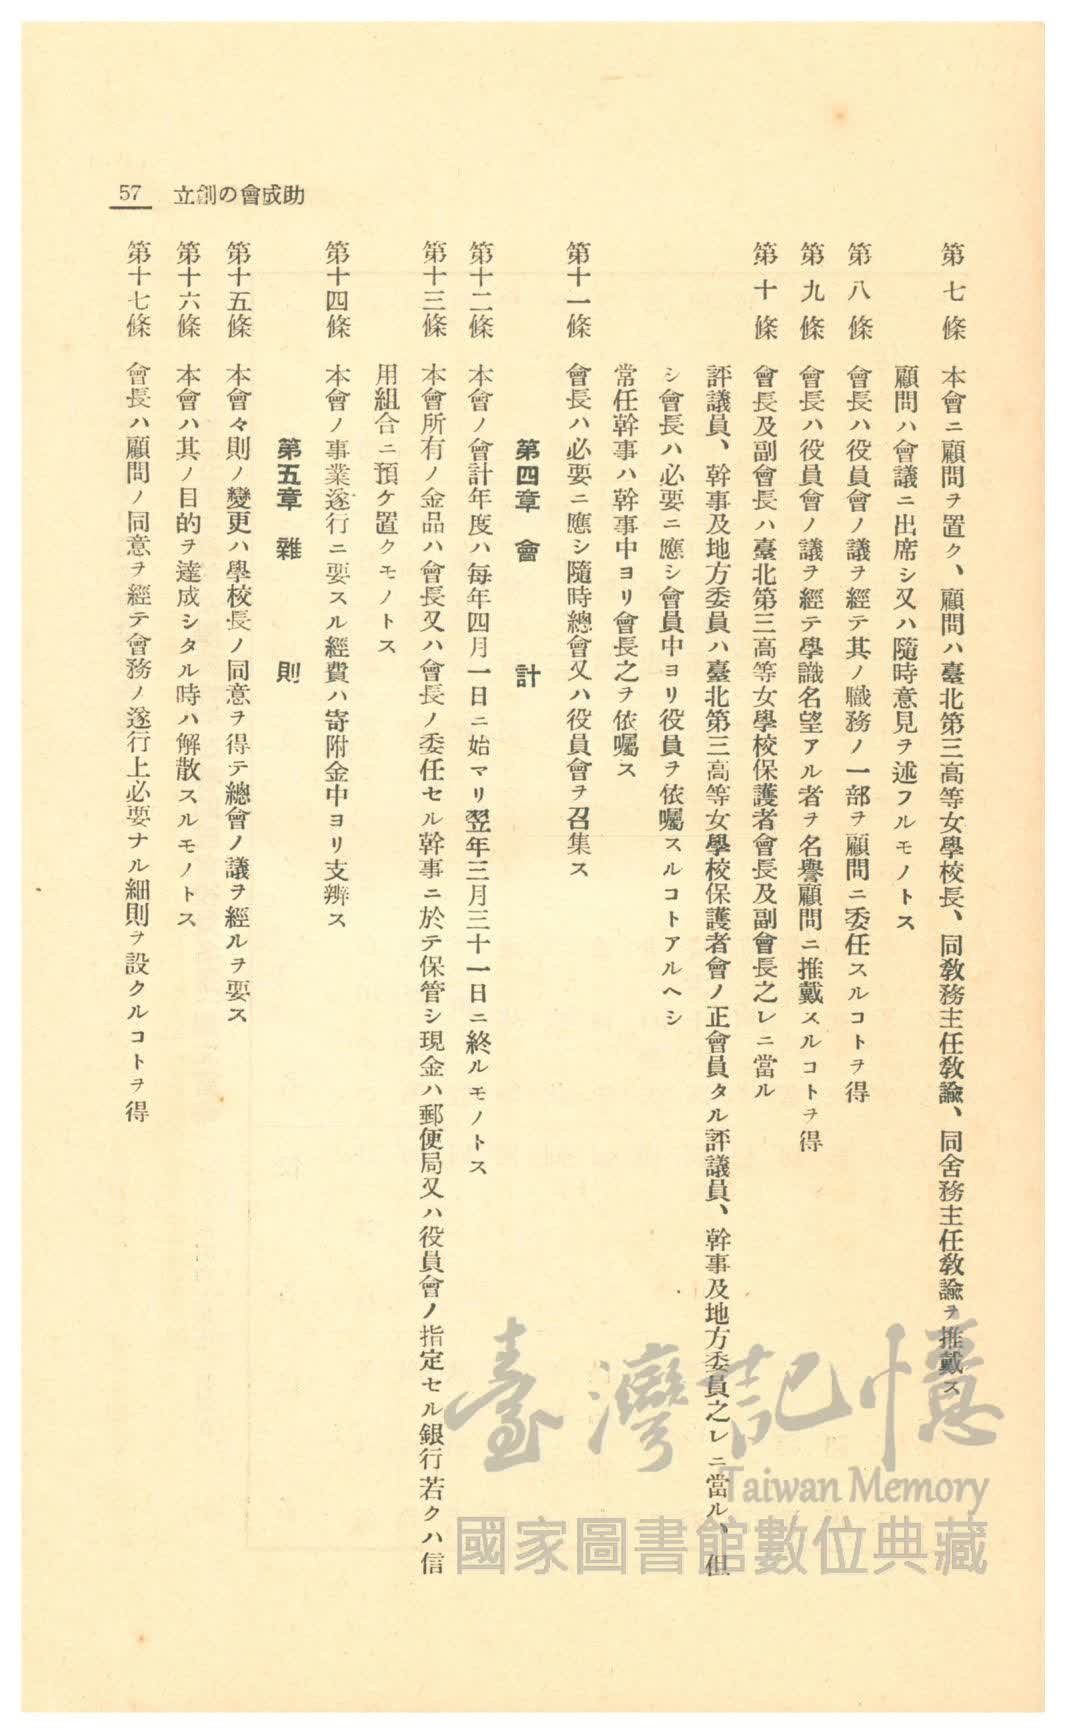 助成會の創立 57
第七條 本會ニ顧問ヲ置ク、顧問ハ臺北第三高等女學校長、同教務主任教諭、同舍務主任教諭ヲ推戴ス
顧問ハ會議ニ出席シ又ハ隨時意見ヲ述フルモノトス
第八條 會長ハ役員會ノ議ヲ經テ其ノ職務ノ一部ヲ顧問ニ委任スルコトヲ得
第九條 會長ハ役員會ノ議ヲ經テ學識名望アル者ヲ名譽顧問ニ推戴スルコトヲ得
第十條 會長及副會長ハ臺北第三高等女學校保護者會長及副會長之レニ當ル
評議員、幹事及地方委員ハ臺北第三高等女學校保護者會ノ正會員タル評議員、幹事及地方委員之レニ當ル、但
シ會長ハ必要ニ應シ會員中ヨリ役員ヲ依囑スルコトアルヘシ
常任幹事ハ幹事中ヨリ會長之ヲ依囑ス
第十一條 會長ハ必要ニ應シ隨時總會又ハ役員會ヲ召集ス
第四章 會計
第十二條 本會ノ會計年度ハ每年四月一日ニ始マリ翌年三月三十一日ニ終ルモノトス
第十三條 本會所有ノ金品ハ會長又ハ會長ノ委任セル幹事ニ於テ保管シ現金ハ郵便局又ハ役員會ノ指定セル銀行若クハ信
用組合ニ預ケ置クモノトス
第十四條 本會ノ事業遂行ニ要スル經費ハ寄附金中ヨリ支辨ス
第五章 雜則
第十五條 本會々則ノ變更ハ學校長ノ同意ヲ得テ總會ノ議ヲ經ルヲ要ス
第十六條 本會ハ其ノ目的ヲ達成シタル時ハ解散スルモノトス
第十七條 會長ハ顧問ノ同意ヲ經テ會務ノ遂行上必要ナル細則ヲ設クルコトヲ得
臺灣記憶
Taiwan Memory
國家圖書館數位典藏